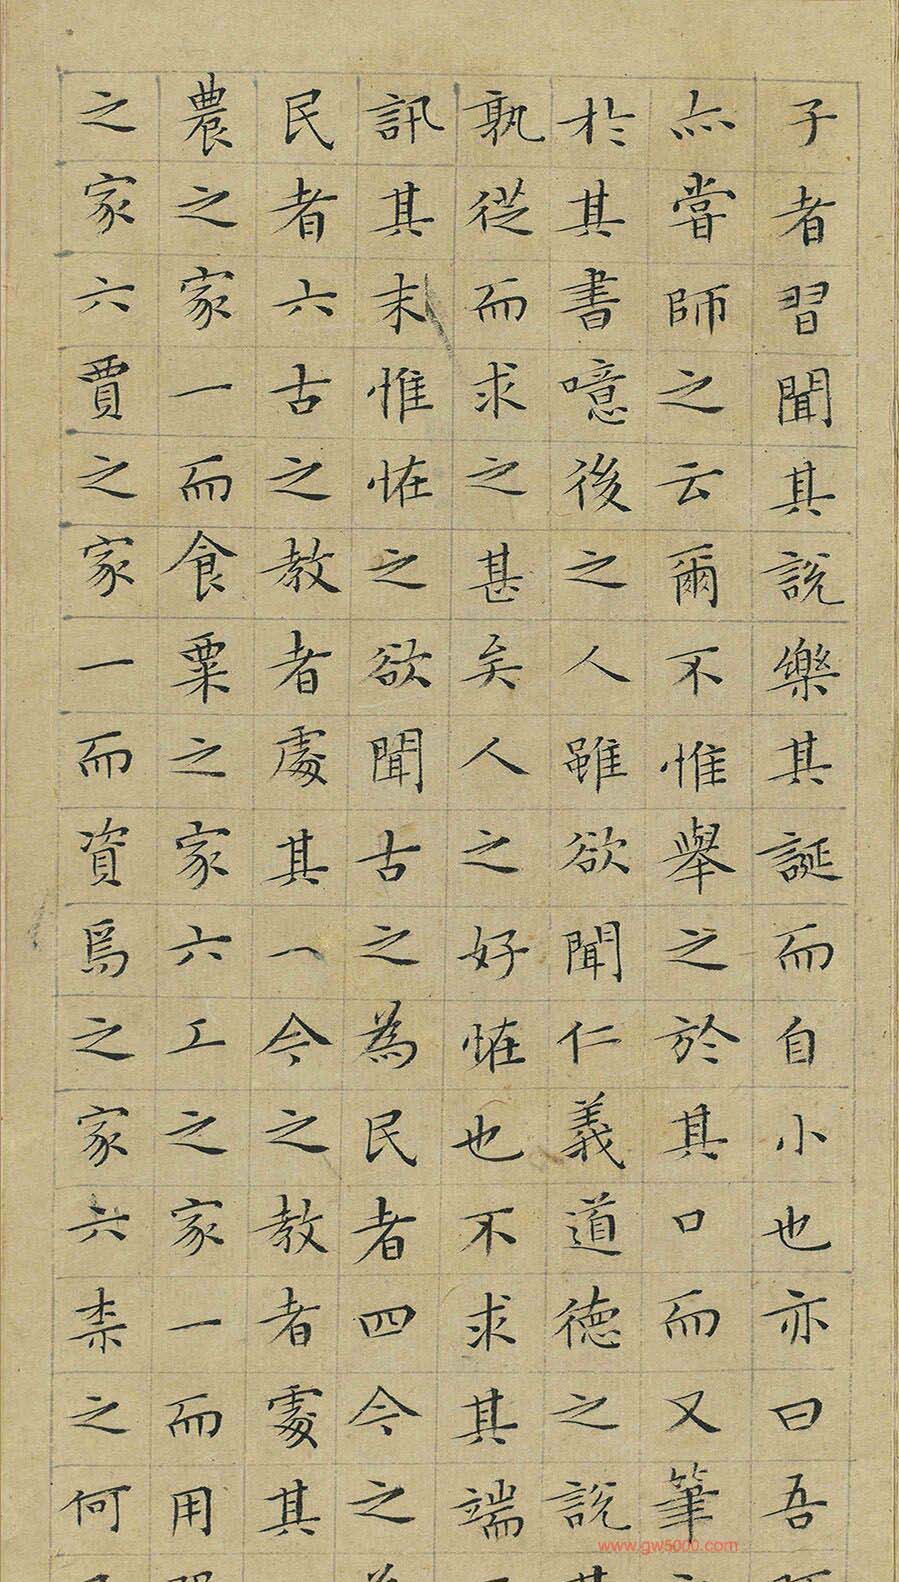 子者習聞其說樂其誕而自小也亦曰吾
亦嘗師之云爾不惟舉之於其口而又筆
於其書噫後之人雖欲聞仁義道德之說
孰從而求之甚矣人之好恠也不求其端
訊其末惟恠之欲聞古之為民者四今之
民者六古之教者處其一今之教者處其
農之家一而食粟之家六工之家一而用
之家六賈之家一而資焉之家六柰之何
www.gw5000.com